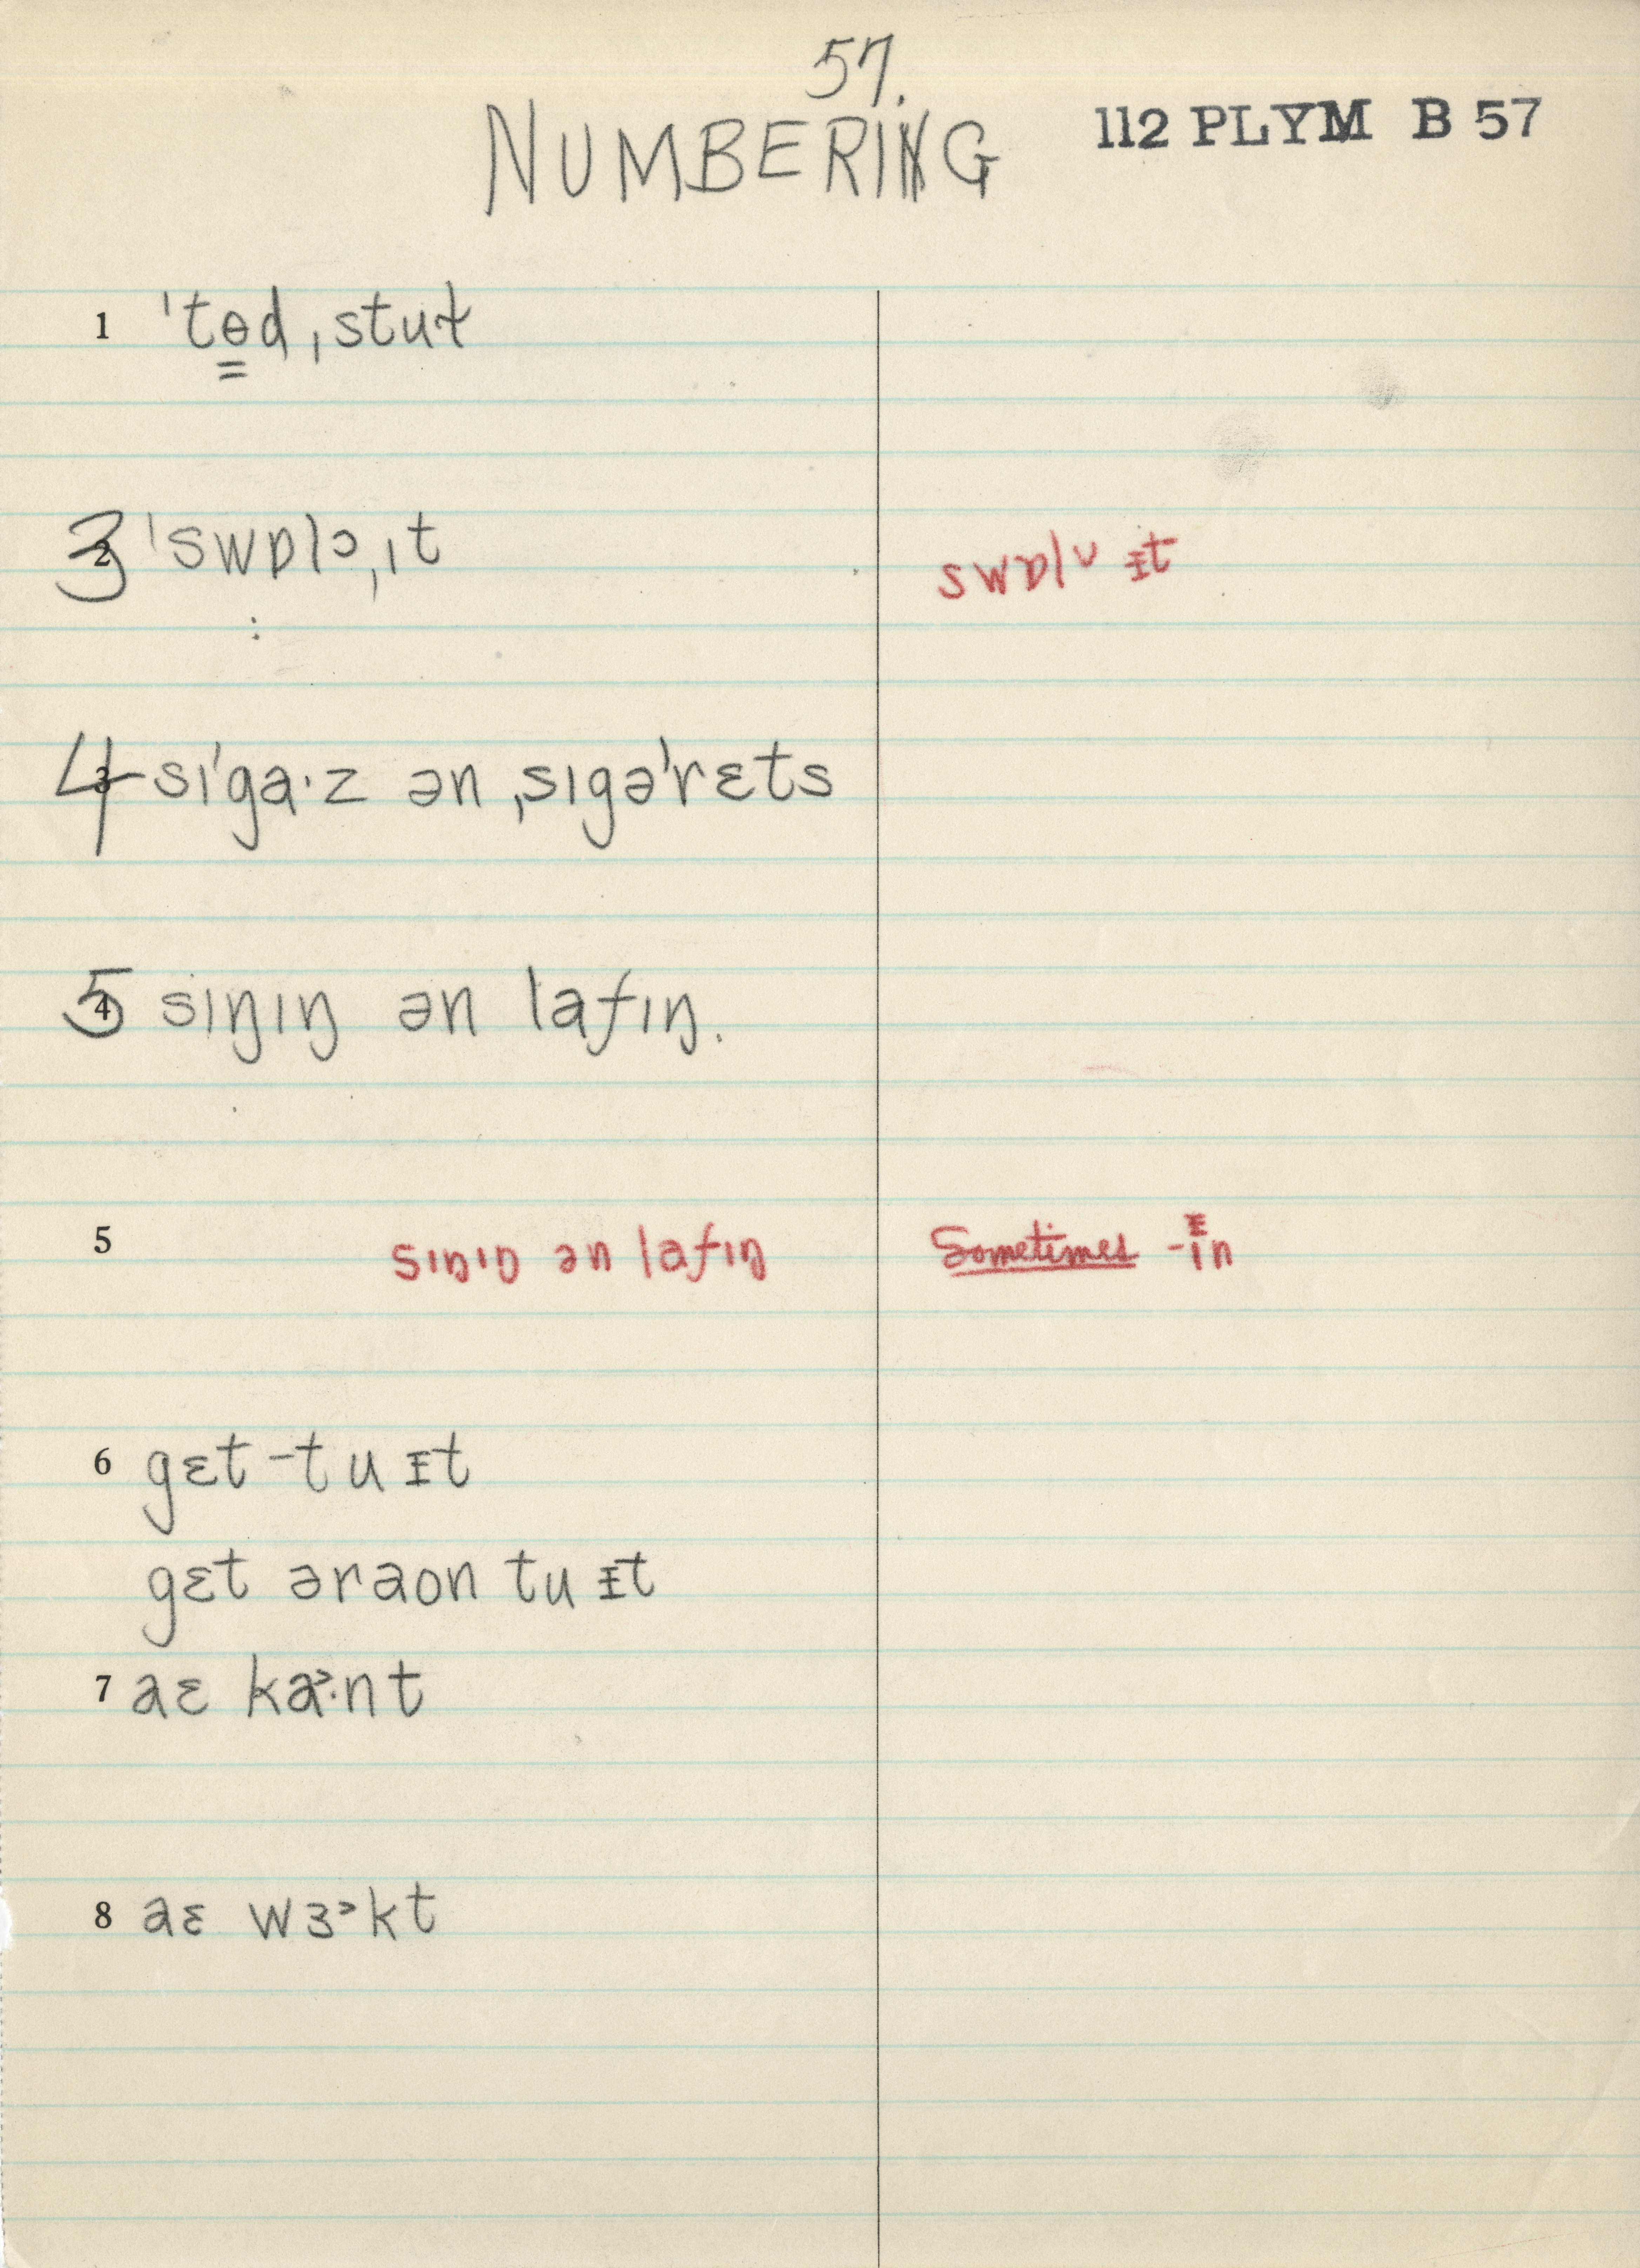 57.
NUMBERING 112 PLYM B 57
1 ˈtɵ̳d ˌstuɫ
3 ˈswɒlɔˌɪt swɒlʊ ᵻt
4 sɪˈgɑ·z ən ˌsɪgəˈrɛts
5 sɪŋɪŋ ən lafɪŋ.
5 sɪŋɪŋ ən lafɪŋ Sometimes -ᵻn
6 gɛt-tu ᵻt
gɛt əraon tu ᵻt
7 aɛ ka˃·nt
8 aɛ wɜ˃kt